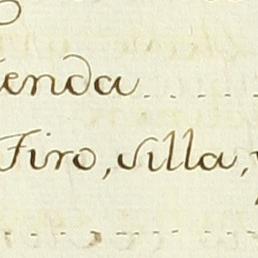 enda
Firo, villa,